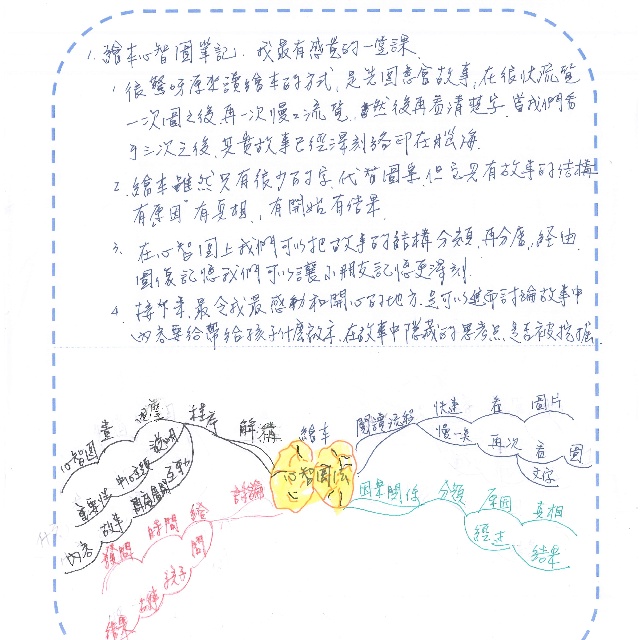 1. 繪本心智圖筆記. 我最有感覺的一堂課.
1 很驚訝原來讀繪本的方式, 是先圖意會故事, 在很快流覽
一次圖之後再一次慢流覽, 然後再看清楚字, 當我們看
了三次之後, 其實故事已經深刻烙印在腦海.
2. 繪本雖然只有很少的字, 代替圖案, 但它具有故事的結構
有原因 有真相, 有開始 有結果.
3. 在心智圖上我們可以把故事的結構分類, 再分層, 經由
圖像記憶我們可以讓小朋友記憶更深刻.
4. 接下來, 最令我最感動和開心的地方, 是可以進而討論故事中
內容要給帶給孩子什麼故事, 在故事中隱藏的思考點, 是否被挖掘.
繪本
心智圖法
解構
程序
心智圖
畫
說明
中心主題
重要性
故事
內容
閱讀流程
快速 看 圖片
慢一點 再次 看 圖
文字
因果關係 分類 原因 真相
經過 結果
討論
時間
提問
問
孩子
故事
結果